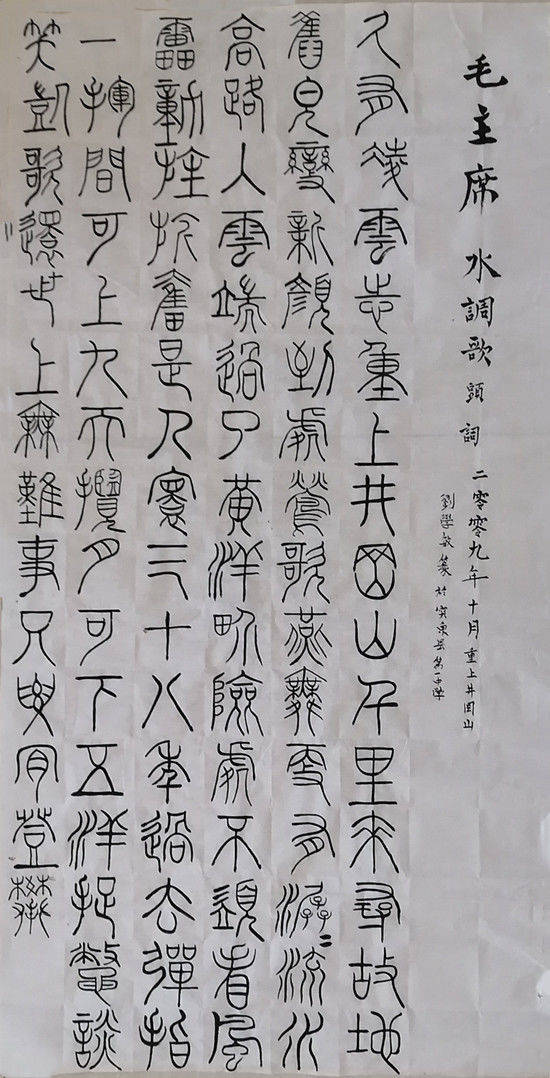 毛主席 水調歌頭 詞 二零零九年十月重上井岡山
劉學敏篆於
久有凌雲志重上井岡山千里來尋故地
舊皃變新顏到處鶯歌燕舞更有潺〻流水
高路入雲端過了黃洋畍險處不須看風
雷動旌旗奮是人寰三十八年過去彈指
一揮間可上九天攬月可下五洋捉鱉談
笑凱歌還世上無難事只要肯登攀